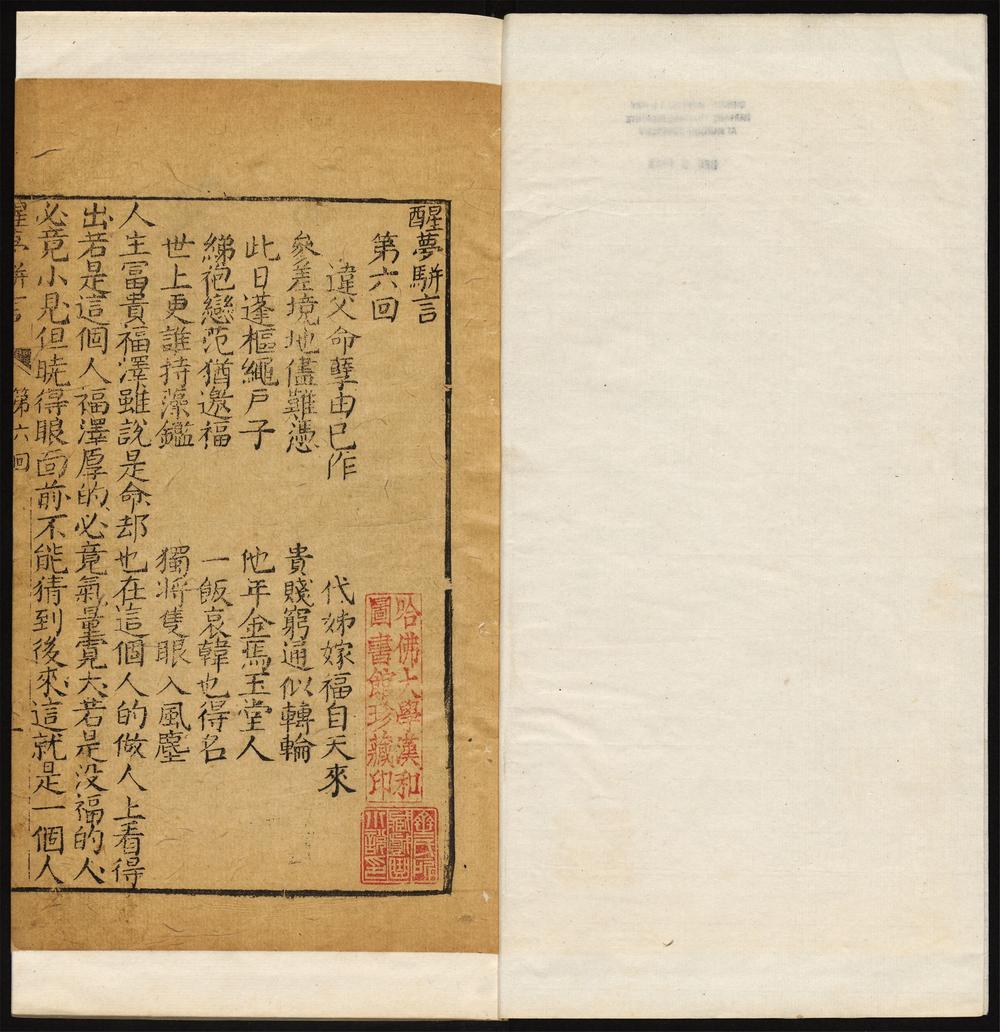 醒夢駢言
第六回
違父命孽由已作　代姊嫁福自天來
參差境地儘難憑　貴賤窮通似轉輪
此日蓬樞繩戶子　他年金馬玉堂人
綈袍戀范猶邀福　一飯哀韓也得名
世上更誰持藻鑑　獨將隻眼入風塵
人生富貴福澤雖說是命却也在這個人的做人上看得
出若是這個人福澤厚的必竟氣量寬大若是没福的人
必竟小見但曉得眼面前不能猜到後來這就是一個人
醒夢駢言　第六回　一
哈佛大學漢和
圖書館珍藏印
齊氏所
藏戲曲
小說印